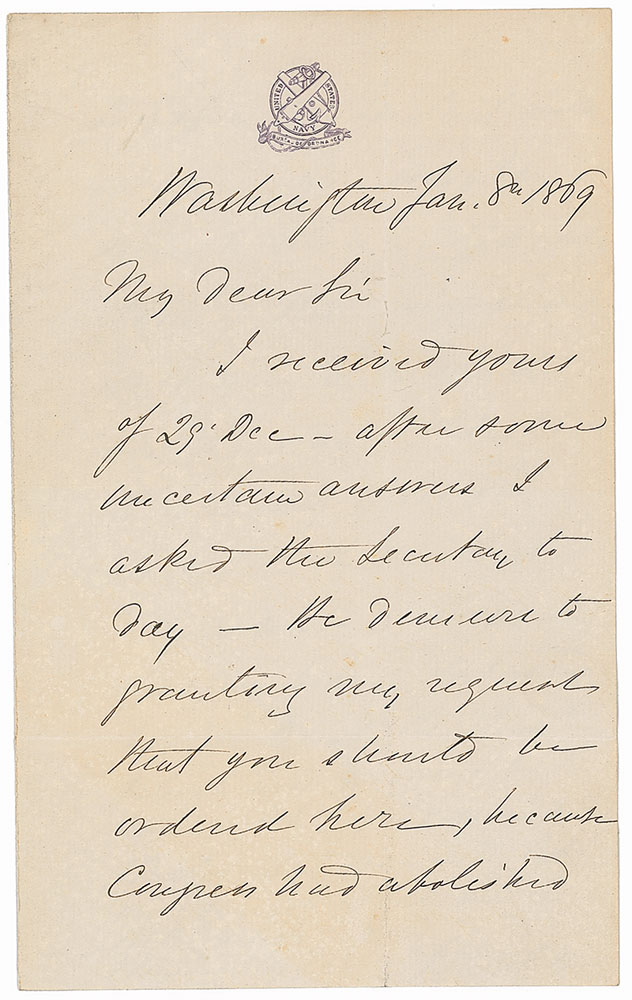 UNITED STATES
NAVY
BUREAU OF ORDNANCE
Washington Jan. 8th 1869
My Dear Sir
I received yours
of 29' Dec – after some
uncertain answers I
asked the Secretary to
Day — He demurs to
granting my request
that you should be
ordered here, because
Congress had abolished